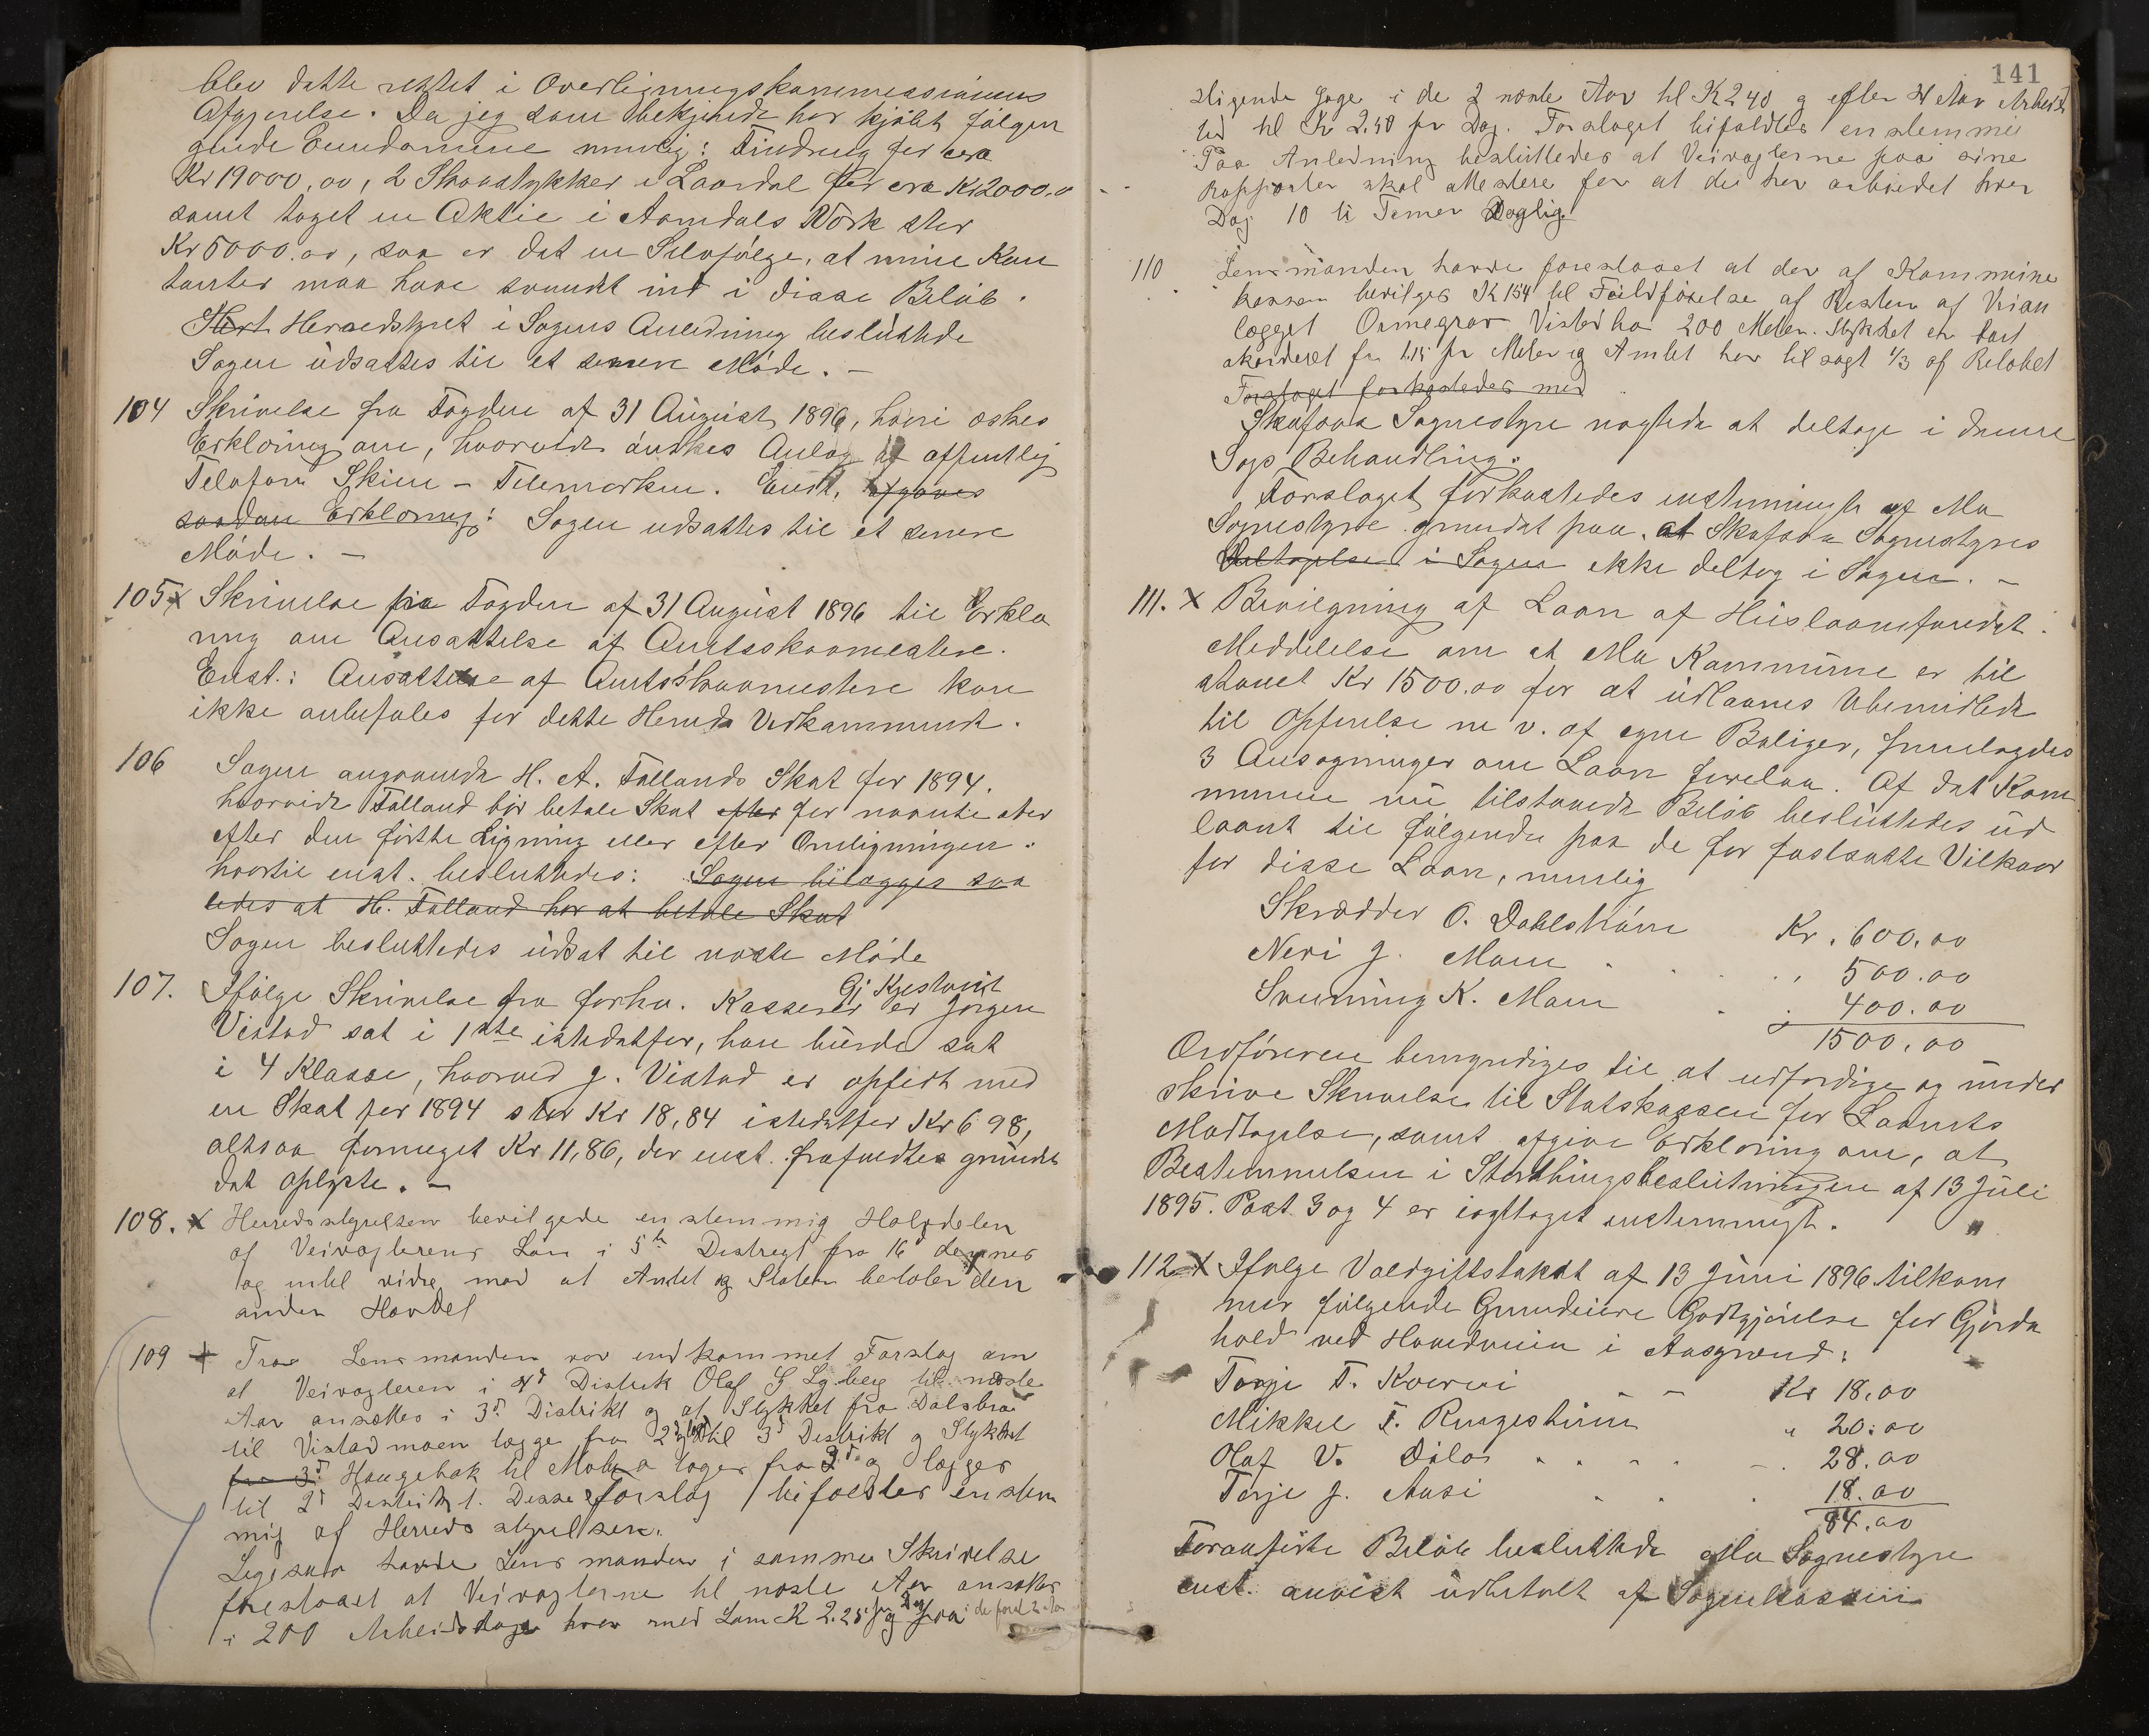 blev dette rettet i Overligningskommissionens
Afgjørelse. Da jeg som bekjendt har kjøbt følgen
gende Eiendomme nemlig: Tindrug for cera
Kr 19000,00, 2 Skovstykker i Laardal for cra Kr 2000.00
samt taget en Aktie i Aamdals Værk stor
Kr 5000.00, saa er det en Selvfølge, at mine Kon
tanter maa have svundet ind i disse Beløb.
Hert Herredstyret i Sagens Anledning besluttede
Sagen udsattes til et senere Møde. —
104 Skrivelse fra Fogden af 31 August 1896, hvori æskes
Erklæring om, hvorvidt ønskes Anlæg af offentlig
Telefon Skien – Telemarken. Enst. afgaves
saadan Erklæring: Sagen udsattes til et senere
Møde. —
105 x Skrivelse fra Fogden af 31 August 1896 til Erklæ
ring om Ansættelse af Amtsskovmestere.
Enst.: Ansættelse af Amtsskovmestere kan
ikke anbefales for dette Herreds Vedkommende.
106 Sagen angaaende H. A. Tallands Skat for 1894.
hvorvidt Talland bør betale Skat efter for nævnte Aar
efter den første Ligning eller efter Omligningen.
hvortil enst. besluttedes: Sagen bilægges saa
ledes at H. Talland har at betale Skat
Sagen besluttedes udsat til næste Møde
107. Ifølge Skrivelse fra forhv. Kasserer Gj Kjestveit er Jørgen
Vistad sat i 1ste istedetfor, han burde sat
i 4 Klasse, hvorved J. Vistad er opført med
en Skat for 1894 stor Kr 18,84 istedetfor Kr 6 98,
altsaa formeget Kr 11,86, der enst. frafaldtes grundet
det oplyste. —
108. x Herredsstyrelsen bevilgede enstemmig Halvdelen
af Veivogterens Løn i 5te Distregt fra 16 dennes
og indtil videre mod at Amtet og Staten betaler den
anden Havdel
109 + Fra Lensmanden var indkommet Forslag om
at Veivogteren i 4d Distrik Olaf S Lgberg til næste
Aar ansættes i 3d Distrikt og at Stykket fra Dalsbraa
til Vistadmoen lægge fra 2d til 3d Distrikt og Stykket
fra 3d Haugebak til Moberg tages fra 3d og lægges
til 2d Distrikt. Disse Forslag bifaldtes enstem
mig af Herredsstyrelsen.
Ligesaa havde Lensmanden i samme Skrivelse
forestaaet at Veivogterne til næste Aar ansættes
i 200 Arbeidsdage hver med Løn K 2.25 pr Dag og fra i de først 2 Aar
141
stigende Gage i de 2 næste Aar til K 2 40 og efter 4 Aar Arbeids
tid til Kr 2.50 pr Dag. Forslaget bifaldtes enstemmig
Paa Anledning besluttedes at Veivogterne paa sine
Rapporter skal attestere for at de har arbeidet hver
Dag 10 ti Timer Daglig
110 Lensmanden havde foreslaaet at der af Kommune
kassen bevilges K 154 til Fuldførelse af Resten af Veian
lægget Ormegrav Vistad ca 200 Meter. Stykket er bort
akorderet for 1.15 pr Meter og Amtet har tilsagt 1/3 af Beløbet
Forslaget forkastedes med
Skafsaa Sognestyre nægtede at deltage i denne
Sags Behandling.
Forslaget forkastedes enstemmigt af Mo
Sognestyre grundet paa, at Skafsaa Sognestyres
Deltagelse i Sagen ikke deltog i Sagen. —
111. x Bevilgning af Laan af Huslaanefondet.
Meddelelse om at Mo Kommune er til
staaet Kr 1500.00 for at udlaanes Ubemidlede
til Opførelse m v. af egne Boliger, fremlagdes
3 Ansøgninger om Laan forelaa. Af det Kom
munen nu tilstaaede Beløb besluttedes ud
laant til følgende paa de for fastsatte Vilkaar
for disse Laan, nemlig
Skrædder O. Dahlstrøm Kr. 600.00
Neri J. Moen . . . 500.00
Svenning K. Moen . . 400.00
1500.00
Ordføreren bemyndiges til at udfærdige og under
skrive Skrivelse til Statskassen for Laanets
Modtagelse, samt afgive Erklæring om, at
Bestemmelsen i Storthingsbeslutningen af 13 Juli
1895. Post 3 og 4 er iagttaget enstemmigt.
112 x Ifølge Voldgiftstakst af 13 Juni 1896 tilkom
mer følgende Grundeiere Godtgjørelse for Gjerde
hold ved Hovedveien i Aasgrend:
Torje T. Kverni Kr 18.00
Mikkel T. Ringestuen " 20.00
Olaf V. Dalos . . . . 28.00
Torje J. Aasi . . . 18.00
84.00
Foranførte Beløb besluttede Mo Sognestyre
enst. anvist udbetalt af Sognekassen